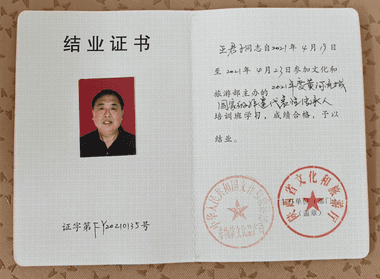 结业证书
证字第FY20210135号
同志自2021年4月19日
至2021年4月23日参加文化和
旅游部主办的2021年度黄河流域
国家级非遗代表性传承人
培训班学习，成绩合格，予以
结业。
中华人民共和国文化和旅游部
陕西省文化和旅游厅
（盖章）